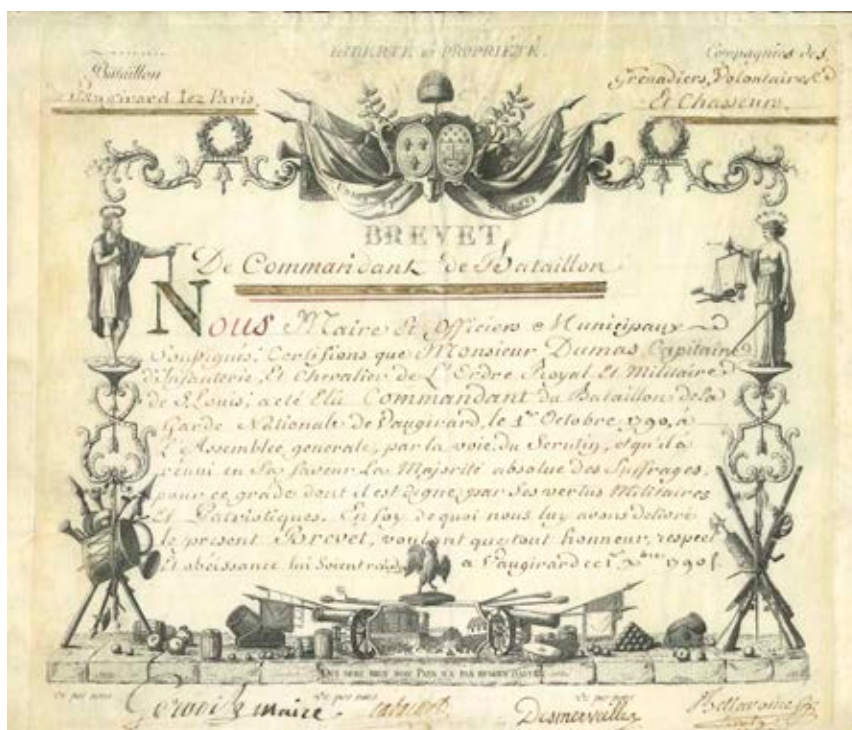 LIBERTÉ et PROPRIÉTÉ.
Bataillon
Vaugirard lez Paris.
Compagnies des
Grenadiers, Volontaires
Et Chasseurs.
BREVET
De Commandant de Bataillon
Nous Maire Et Officiers Municipaux
Soussignés; Certifions que Monsieur Dumas, Capitaine
d'Infanterie, Et Chevalier de L'Ordre Royal Et Militaire
de St Louis, a été Elû Commandant du Bataillon de la
Garde Nationale de Vaugirard, le 1er Octobre 1790, à
L'Assemblée generale, par la voie du Scrutin, et qu'il a
réuni en Sa faveur La Majorité absolue des Suffrages,
pour ce grade dont il est digne par Ses vertus Militaires
Et Patriotiques. En foy de quoi nous luy avons délivré
le présent Brevet, voulant que tout honneur, respect
Et obéissance lui Soient à Vaugirard ce 1er 1790.
QUI SERT BIEN SON PAYS N'A PAS BESOIN D'AYEUX
Vu par nous
Vu par nous
Vu par nous
maire
Desmervilles